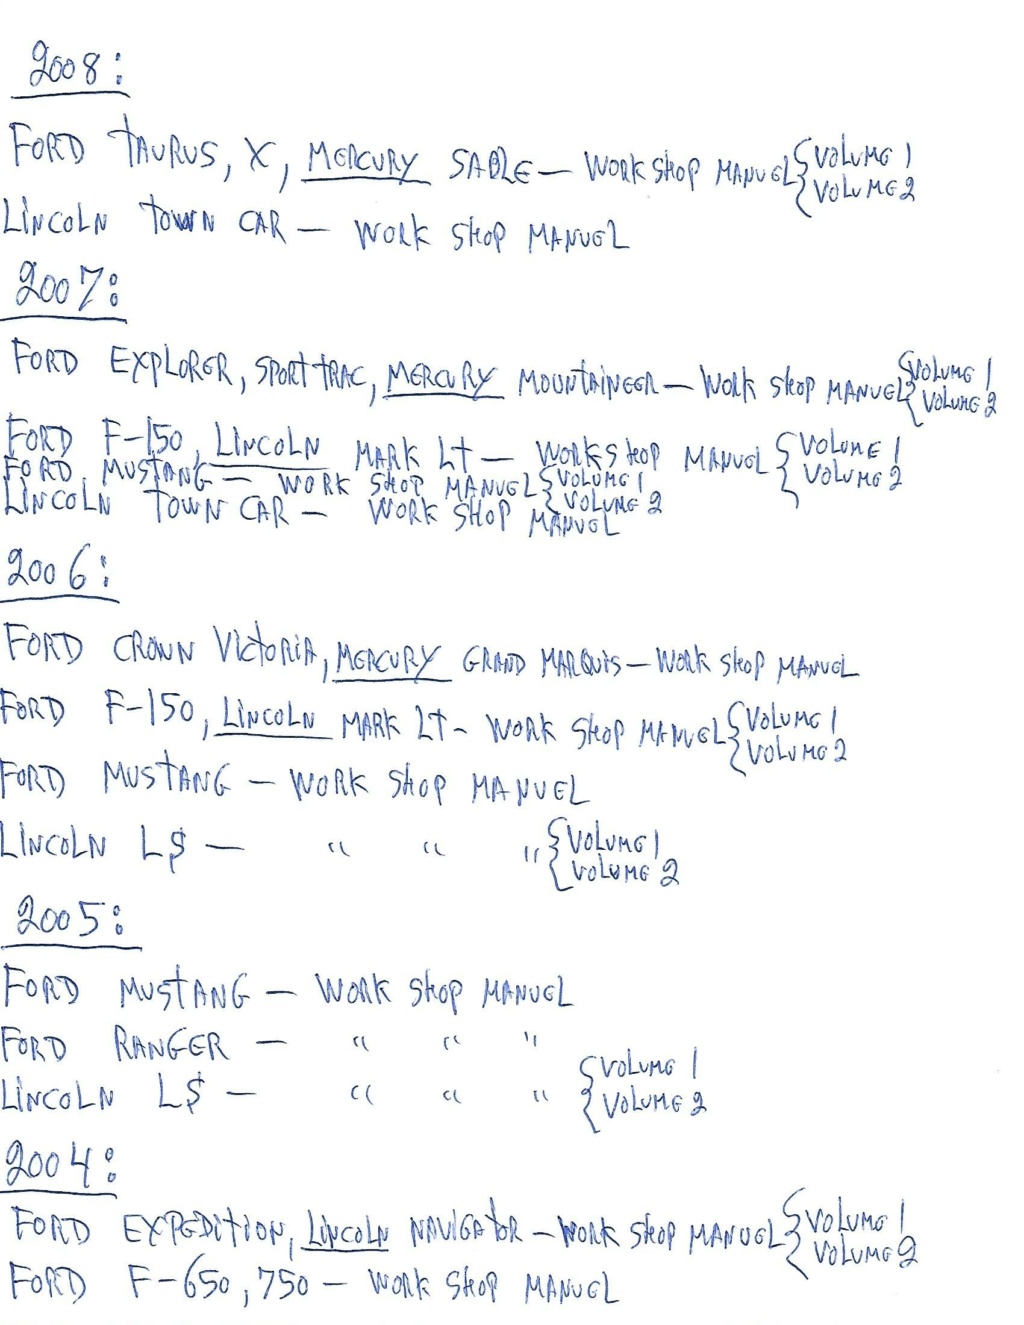 2008:
FORD TAURUS, X, MERCURY SABLE — WORK SHOP MANUEL { VOLUME 1
VOLUME 2
LINCOLN TOWN CAR — WORK SHOP MANUEL
2007:
FORD EXPLORER, SPORT TRAC, MERCURY MOUNTAINEER — WORK SHOP MANUEL { VOLUME 1
VOLUME 2
FORD F-150, LINCOLN MARK LT — WORK SHOP MANUEL { VOLUME 1
VOLUME 2
FORD MUSTANG — WORK SHOP MANUEL { VOLUME 1
VOLUME 2
LINCOLN TOWN CAR — WORK SHOP MANUEL
2006:
FORD CROWN VICTORIA, MERCURY GRAND MARQUIS — WORK SHOP MANUEL
FORD F-150, LINCOLN MARK LT - WORK SHOP MANUEL { VOLUME 1
VOLUME 2
FORD MUSTANG — WORK SHOP MANUEL
LINCOLN L$ — " " " { VOLUME 1
VOLUME 2
2005:
FORD MUSTANG — WORK SHOP MANUEL
FORD RANGER — " " "
LINCOLN L$ — " " " { VOLUME 1
VOLUME 2
2004:
FORD EXPEDITION, LINCOLN NAVIGATOR — WORK SHOP MANUEL { VOLUME 1
VOLUME 2
FORD F-650, 750 — WORK SHOP MANUEL